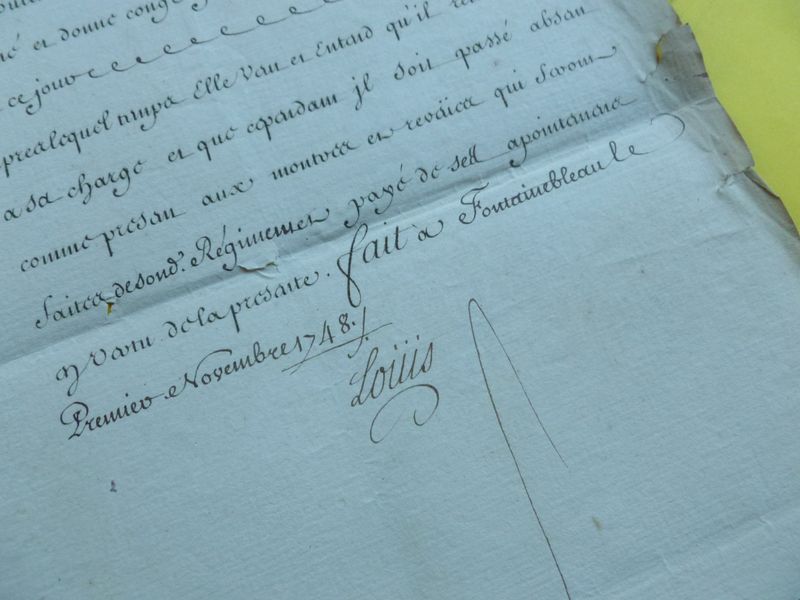 né et donné congé
ce jour
apres lequel temps Elle Veut et Entend qu'il
a sa charge et que cependant jl soit passé absent
comme present aux montres et reveües qui Seront
faites de sond. Régiment et payé de ses apointemens
en vertu de la presente. fait a Fontainebleau le
Premier Novembre 1748./.
Loüis